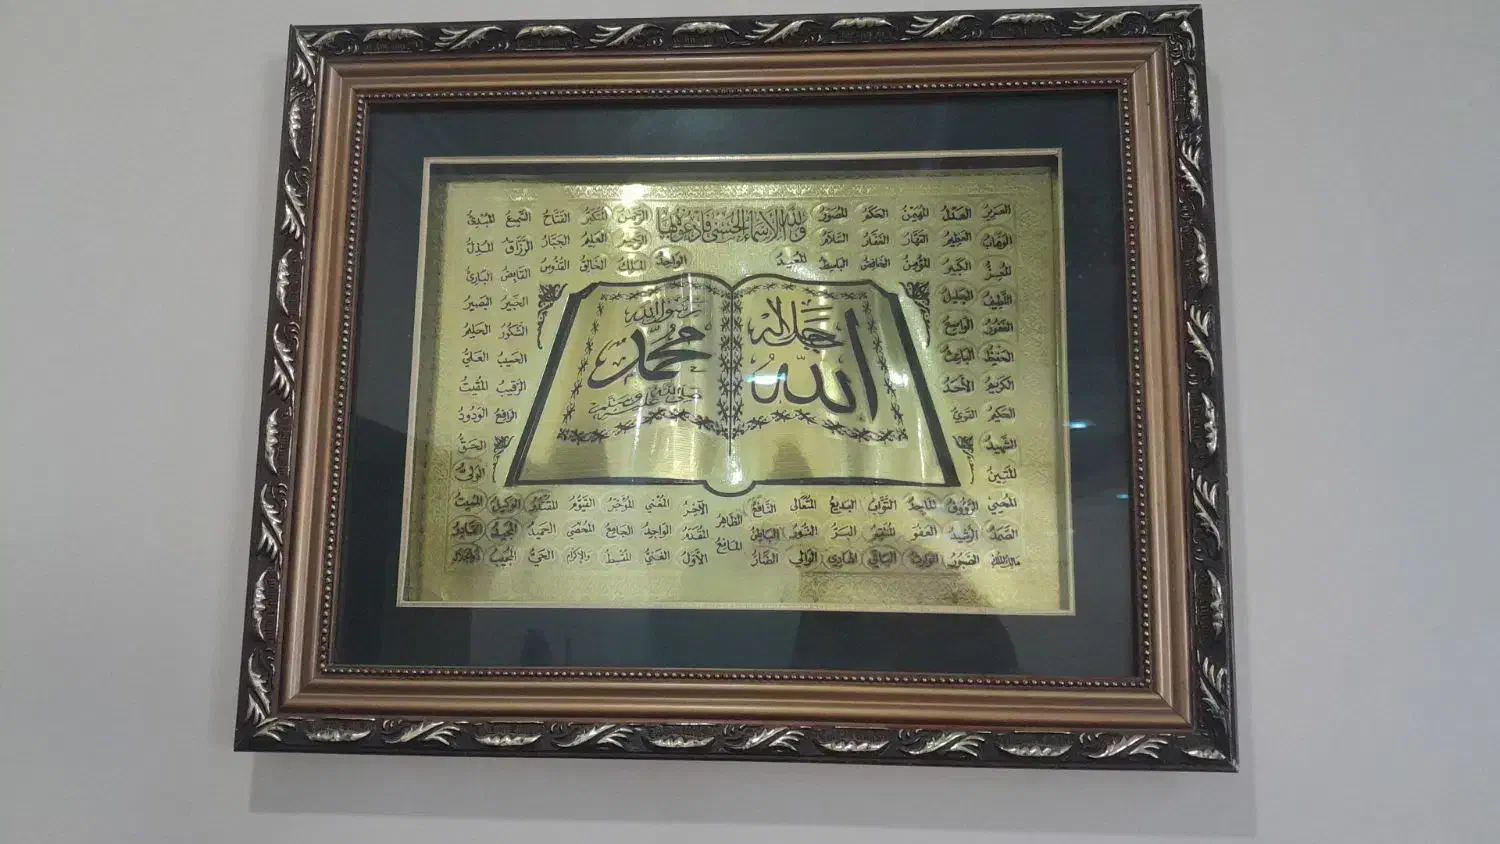 العزيز العدل المهيمن الحكم المصور ولله الأسماء الحسنى فادعوه بها الرحمن المتكبر الفتاح السميع المبدئ
الوهاب العظيم القهار الغفار السلام الرحيم العليم الجبار الرزاق المذل
المعز الكبير المؤمن الخافض الباسط المعيد الواجد الملك الخالق القدوس القابض البارئ
اللطيف الجليل الخبير البصير
الغفور الواسع الشكور الحليم
الحفيظ الباعث الحسيب العلي
الكريم الأحد الرقيب المقيت
الحكيم القوي الرافع الودود
الشهيد الحق
المتين الولي
جل جلاله
الله
رسول الله
محمد
صلى الله عليه وسلم
المحيي الرؤوف الماجد التواب البديع المتعالى النافع الظاهر الآخر المغني المؤخر القيوم المقتدر الوكيل المميت
الصمد الرشيد العفو المنتقم البر النور الباطن المانع المقدم الواجد الجامع المحصي الحميد المجيد القادر
مالك الملك الصبور الوارث الباقي الهادي الوالي الضار الأول الغني المقسط والإكرام الحي المجيب ذو الجلال